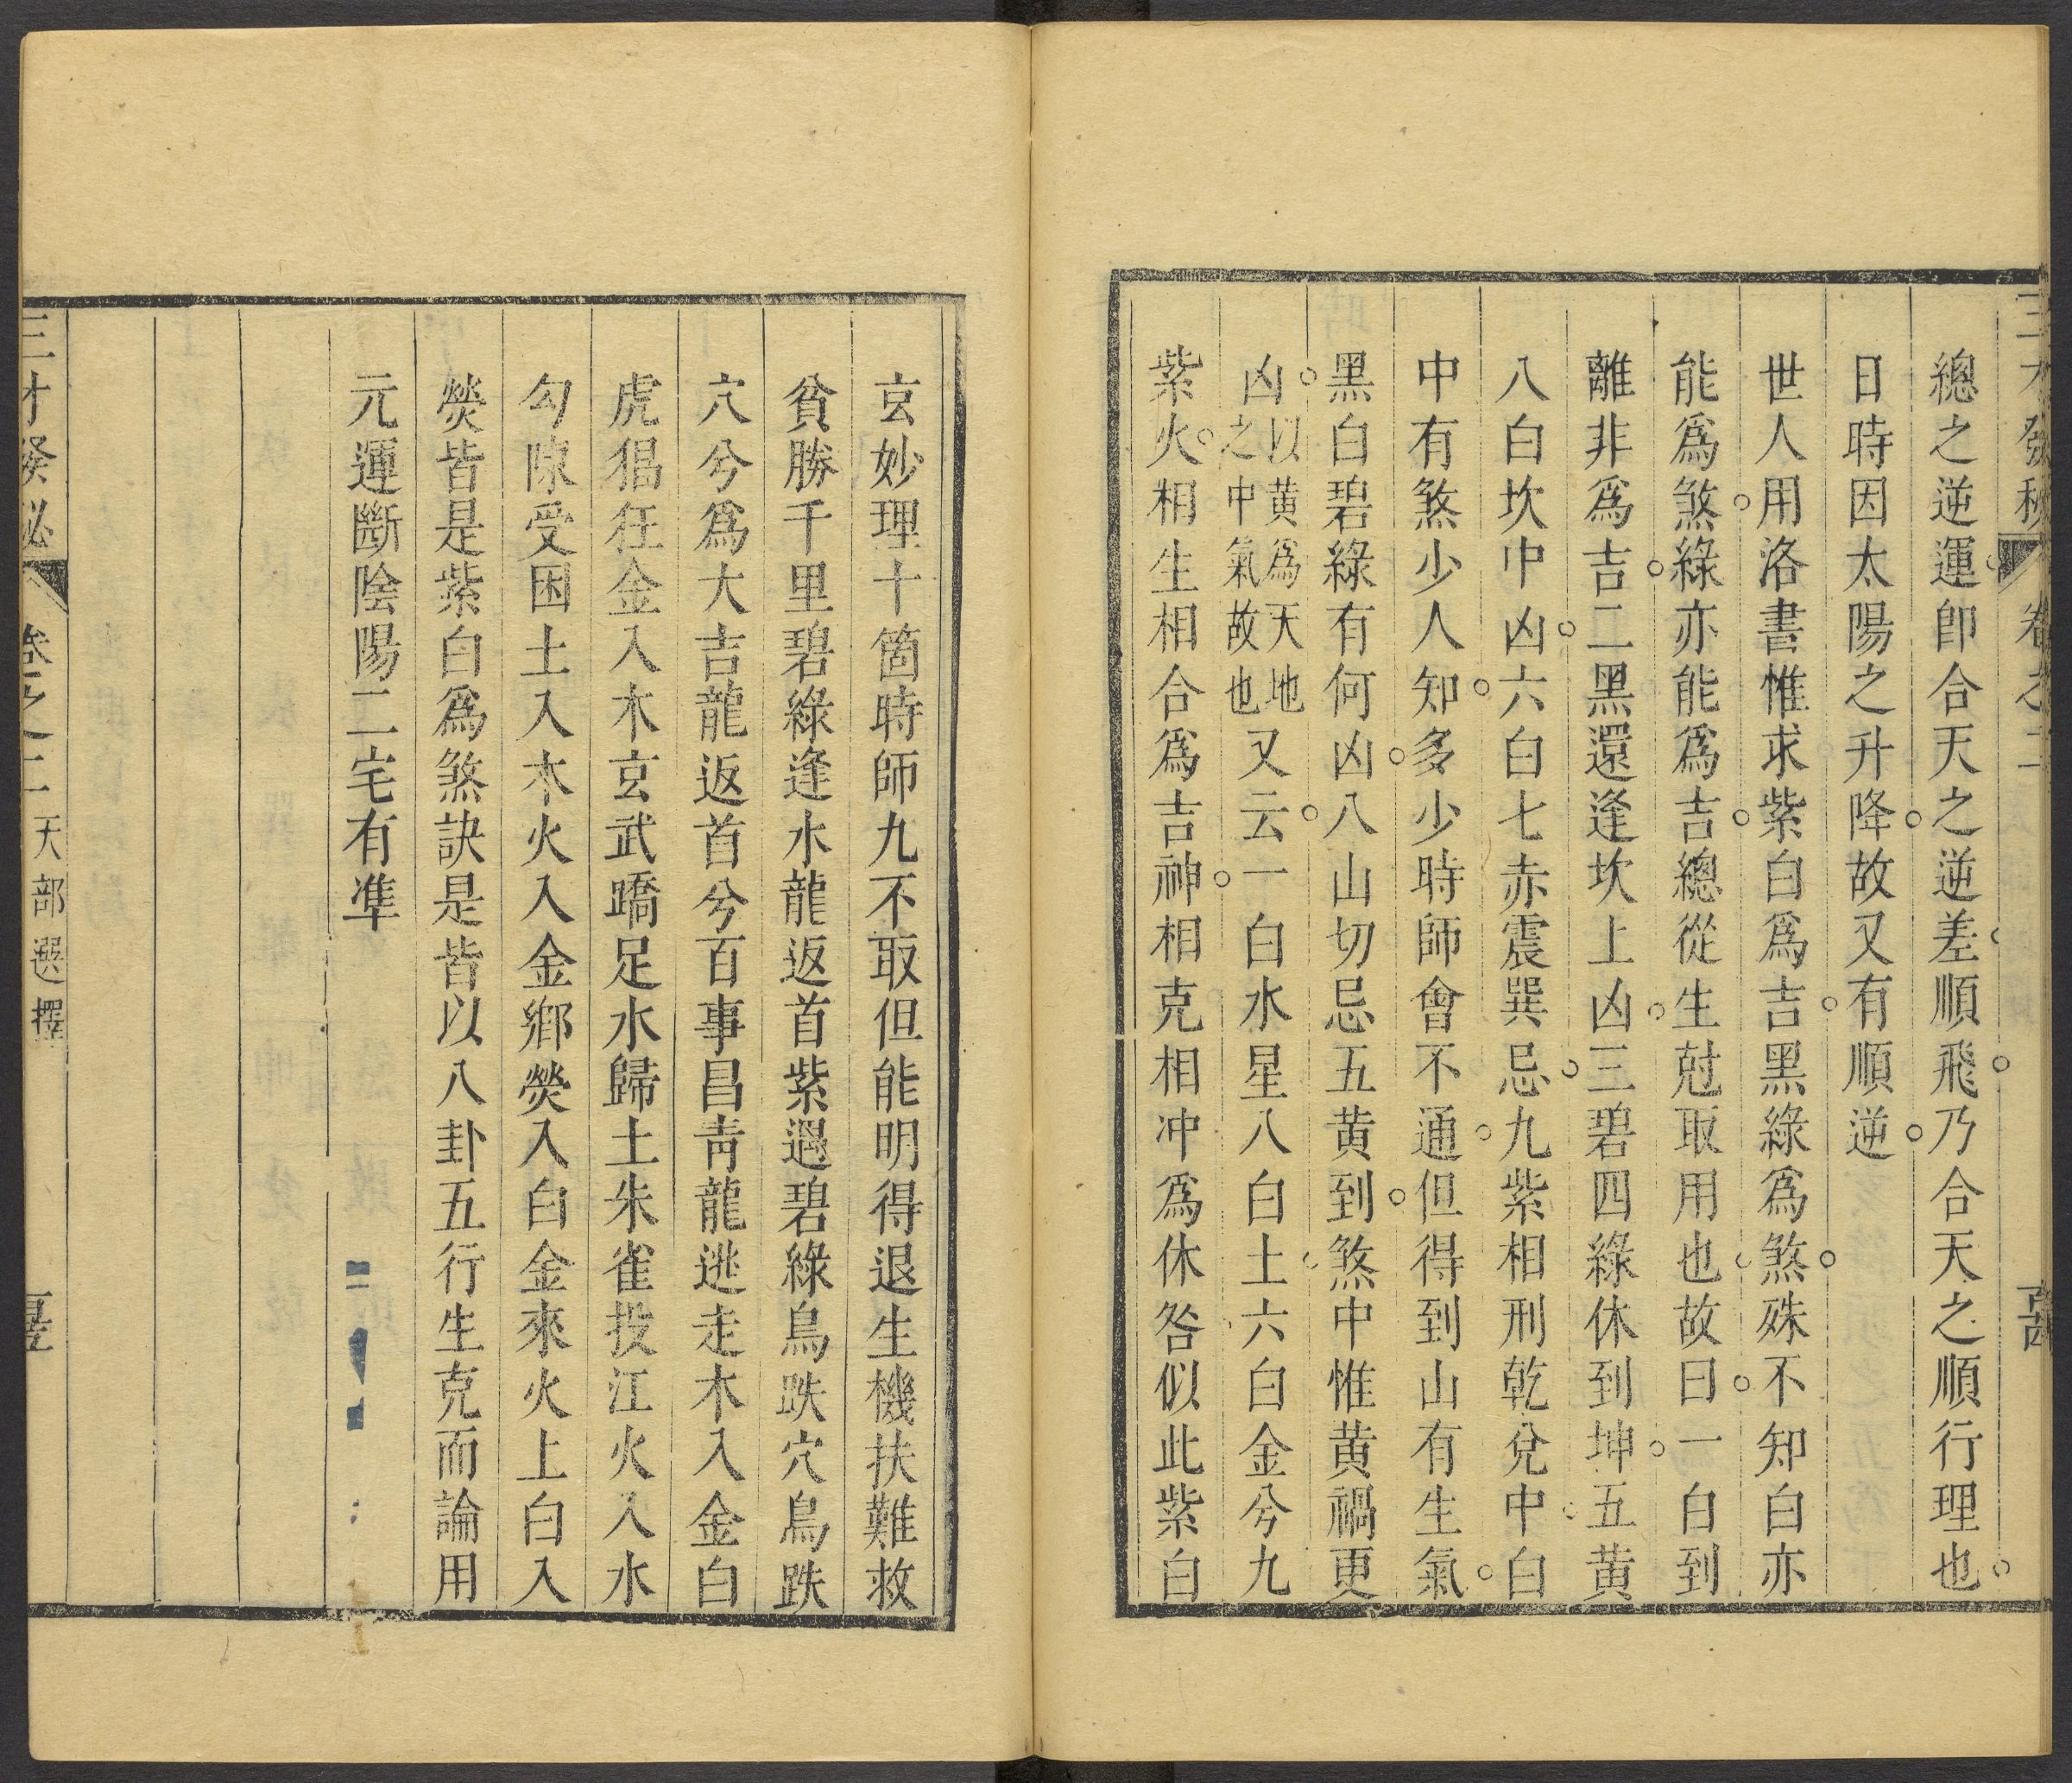 三才發秘 卷之二
總之逆運卽合天之逆差順飛乃合天之順行理也
日時因太陽之升降故又有順逆
世人用洛書惟求紫白爲吉黑綠爲煞殊不知白亦
能爲煞綠亦能爲吉總從生尅取用也故曰一白到
離非爲吉二黑還逢坎上凶三碧四綠休到坤五黃
八白坎中凶六白七赤震巽忌九紫相刑乾兌中白
中有煞少人知多少時師會不通但得到山有生氣
黑白碧綠有何凶八山切忌五黃到煞中惟黃禍更
凶以黃爲天地之中氣故也又云一白水星八白土六白金兮九
紫火相生相合爲吉神相克相冲爲休咎似此紫白
玄妙理十箇時師九不取但能明得退生機扶難救
貧勝千里碧綠逢水龍返首紫遇碧綠鳥跌穴鳥跌
穴兮爲大吉龍返首兮百事昌青龍逃走木入金白
虎猖狂金入木玄武蹻足水歸土朱雀投江火入水
勾陳受困土入木火入金鄉熒入白金來火上白入
熒皆是紫白爲煞訣是皆以八卦五行生克而論用
元運斷陰陽二宅有凖
三才發秘 卷之二 天部選擇